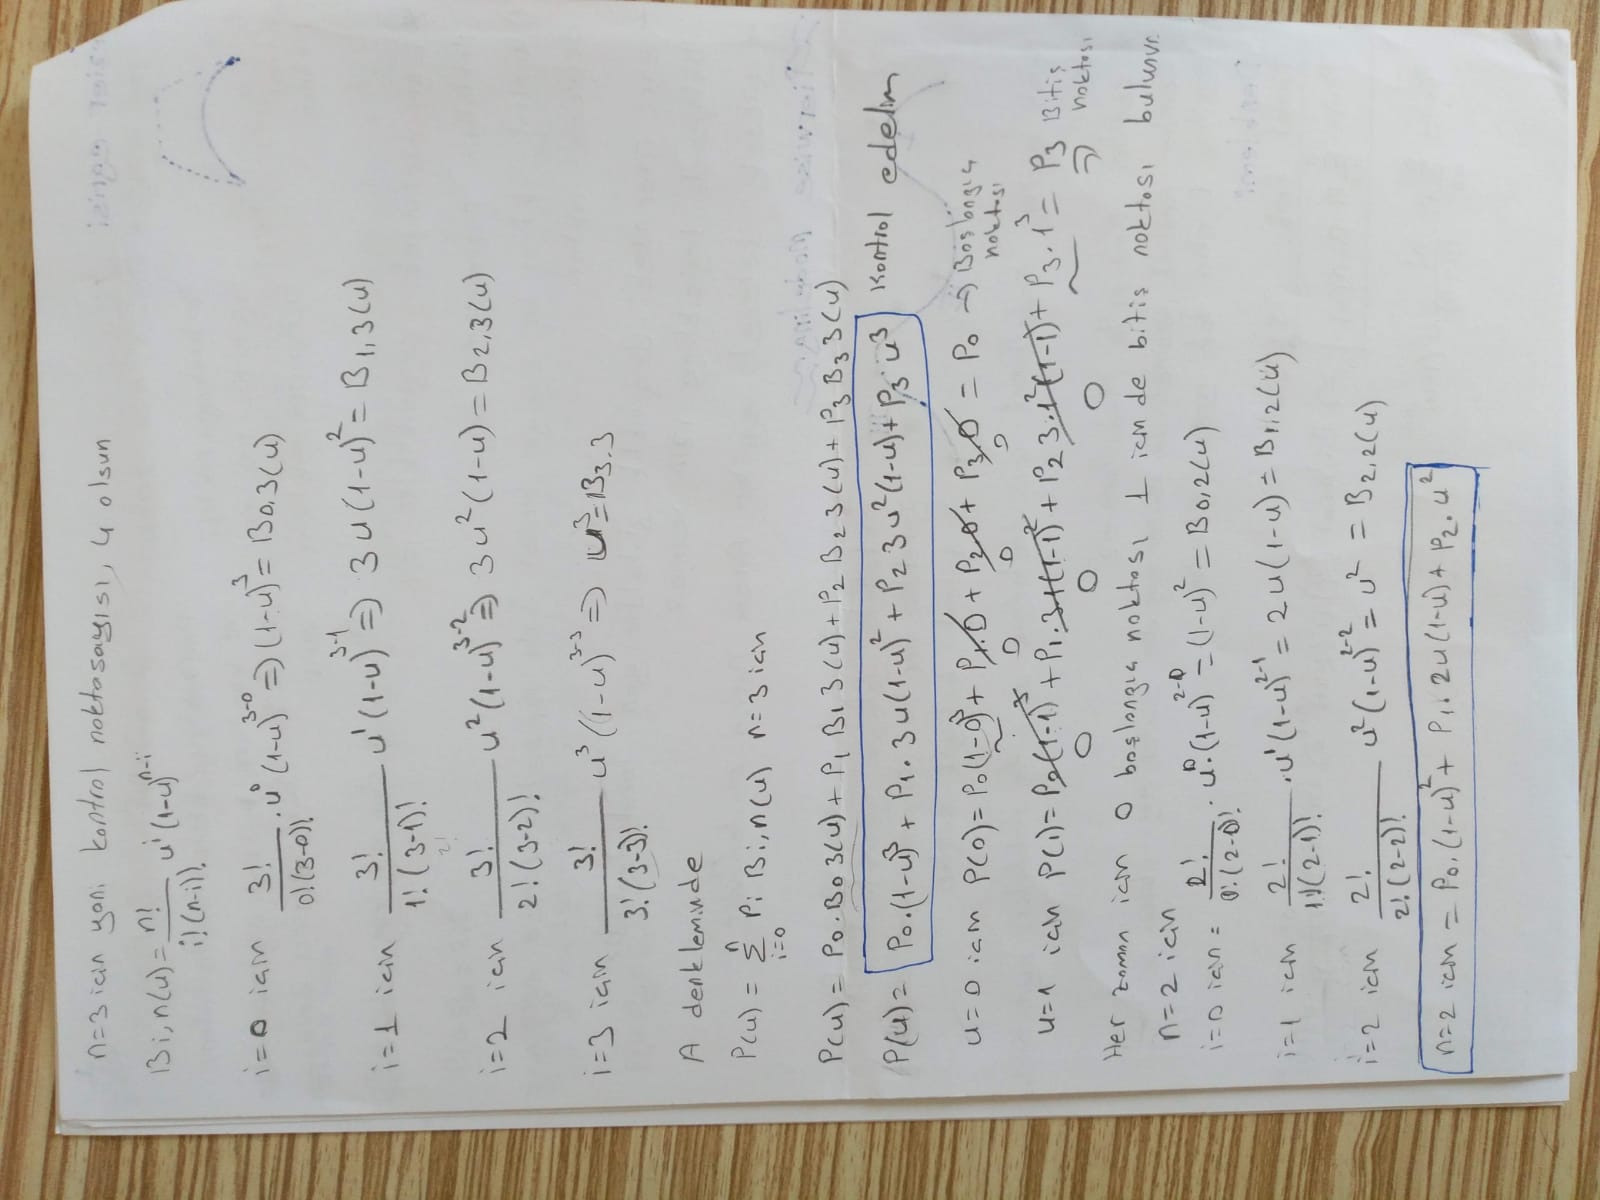 n=3 için yani kontrol noktasayısı, 4 olsun
Bi,n(u) = n!/i!(n-i)! u^i (1-u)^n-i
i=0 için 3!/0!(3-0)! . u^0 (1-u)^3-0 => (1-u)^3 = B0,3(u)
i=1 için 3!/1!(3-1)! u^1 (1-u)^3-1 => 3u(1-u)^2 = B1,3(u)
i=2 için 3!/2!(3-2)! u^2 (1-u)^3-2 => 3u^2(1-u) = B2,3(u)
i=3 için 3!/3!(3-3)! u^3 (1-u)^3-3 => u^3 = B3.3
A denkleminde
P(u) = Σ i=0 n Pi Bi,n(u) n=3 için
P(u) = P0.B03(u) + P1 B13(u) + P2 B23(u) + P3 B33(u)
P(u) = P0.(1-u)^3 + P1.3u(1-u)^2 + P2 3u^2(1-u) + P3.u^3 Kontrol edelim
u=0 için P(0) = P0(1-0)^3 + P1.0 + P2 0 + P3.0 = P0 => Başlangıç noktası
0 0 0
u=1 için P(1) = P0(1-1)^3 + P1.3.1(1-1)^2 + P2 3.1^2(1-1) + P3.1^3 = P3 => Bitiş noktası
0 0 0
Her zaman için 0 başlangıç noktası 1 için de bitiş noktası bulunur
n=2 için
i=0 için = 2!/0!(2-0)! . u^0.(1-u)^2-0 = (1-u)^2 = B0,2(u)
i=1 için 2!/1!(2-1)! . u^1(1-u)^2-1 = 2u(1-u) = B1,2(u)
i=2 için 2!/2!(2-2)! u^2(1-u)^2-2 = u^2 = B2,2(u)
n=2 için = P0.(1-u)^2 + P1.2u(1-u) + P2.u^2